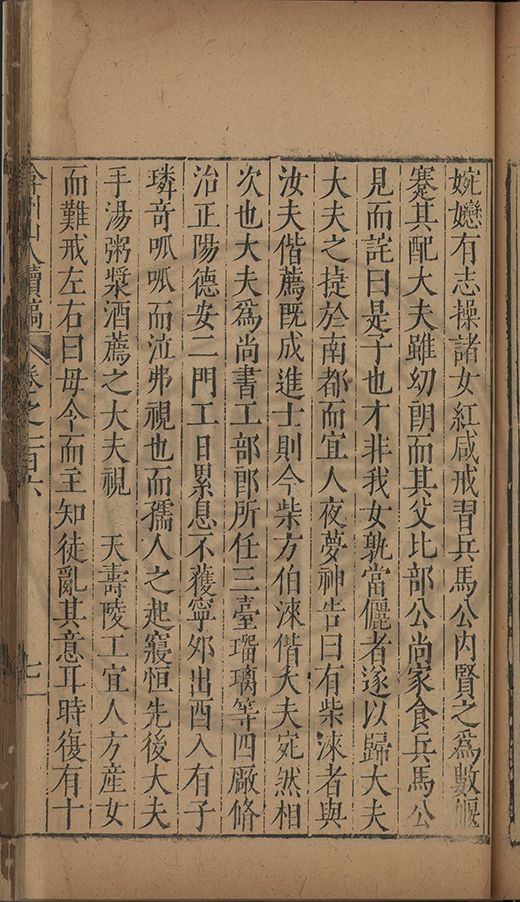 婉嫕有志操諸女紅咸戒習兵馬公内賢之爲數偃
蹇其配大夫雖幼朗而其父比部公尚家食兵馬公
見而詫曰是子也才非我女孰當儷者遂以歸大夫
大夫之㨗於南都而宜人夜夢神告曰有柴淶者與
汝夫偕薦既成進士則今柴方伯淶偕大夫宛然相
次也大夫爲尚書工部郎所任三臺瑠璃等四廠脩
治正陽德安二門工日累息不獲寧夘出酉入有子
璘竒呱呱而泣弗視也而孺人之起寢恒先後大夫
手湯粥漿酒薦之大夫視 天壽陵工宜人方産女
而難戒左右曰毋今而主知徒亂其意耳時復有十
弇州山人續稿 卷之一百六 七